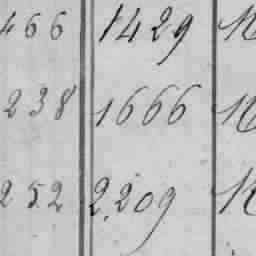 466 1429
238 1666
252 2,209